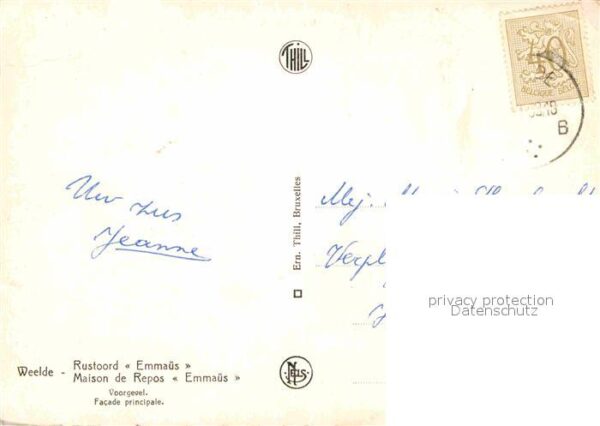 THILL
40
BELGIQUE BELG
B
Uw zus
Jeanne
Ern. Thill, Bruxelles
Mej.
privacy protection
Datenschutz
NELS
Weelde - Rustoord « Emmaüs »
Maison de Repos « Emmaüs »
Voorgevel.
Façade principale.